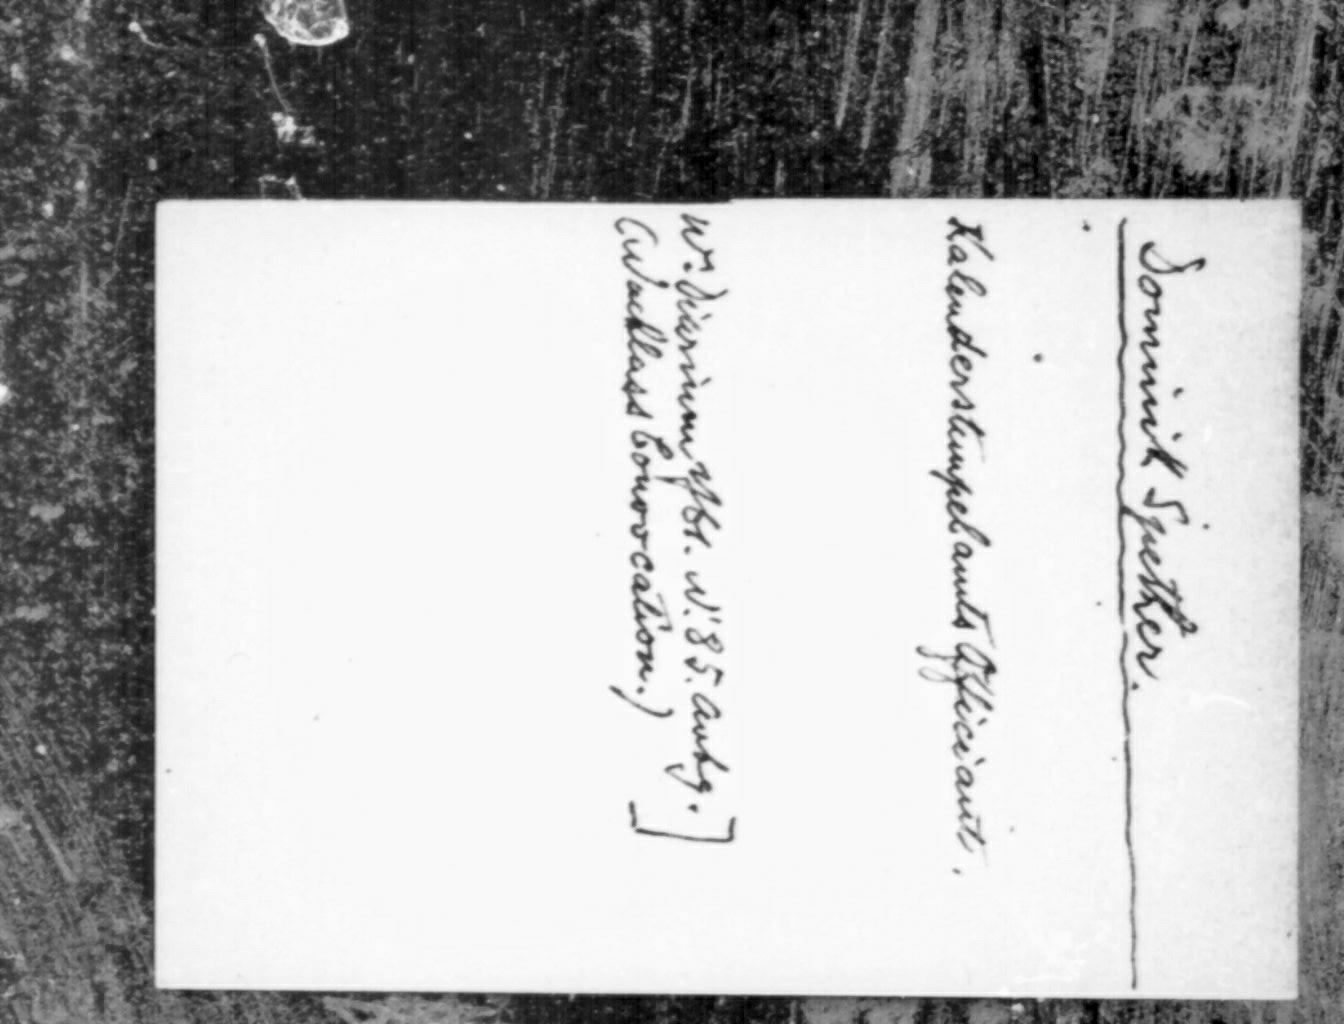 Dominik Spether.
Kalenderstempelamts Officiant.
Wr. Diarium 1761. N. 85. Anhg.
(Nachlass Convocation.)]